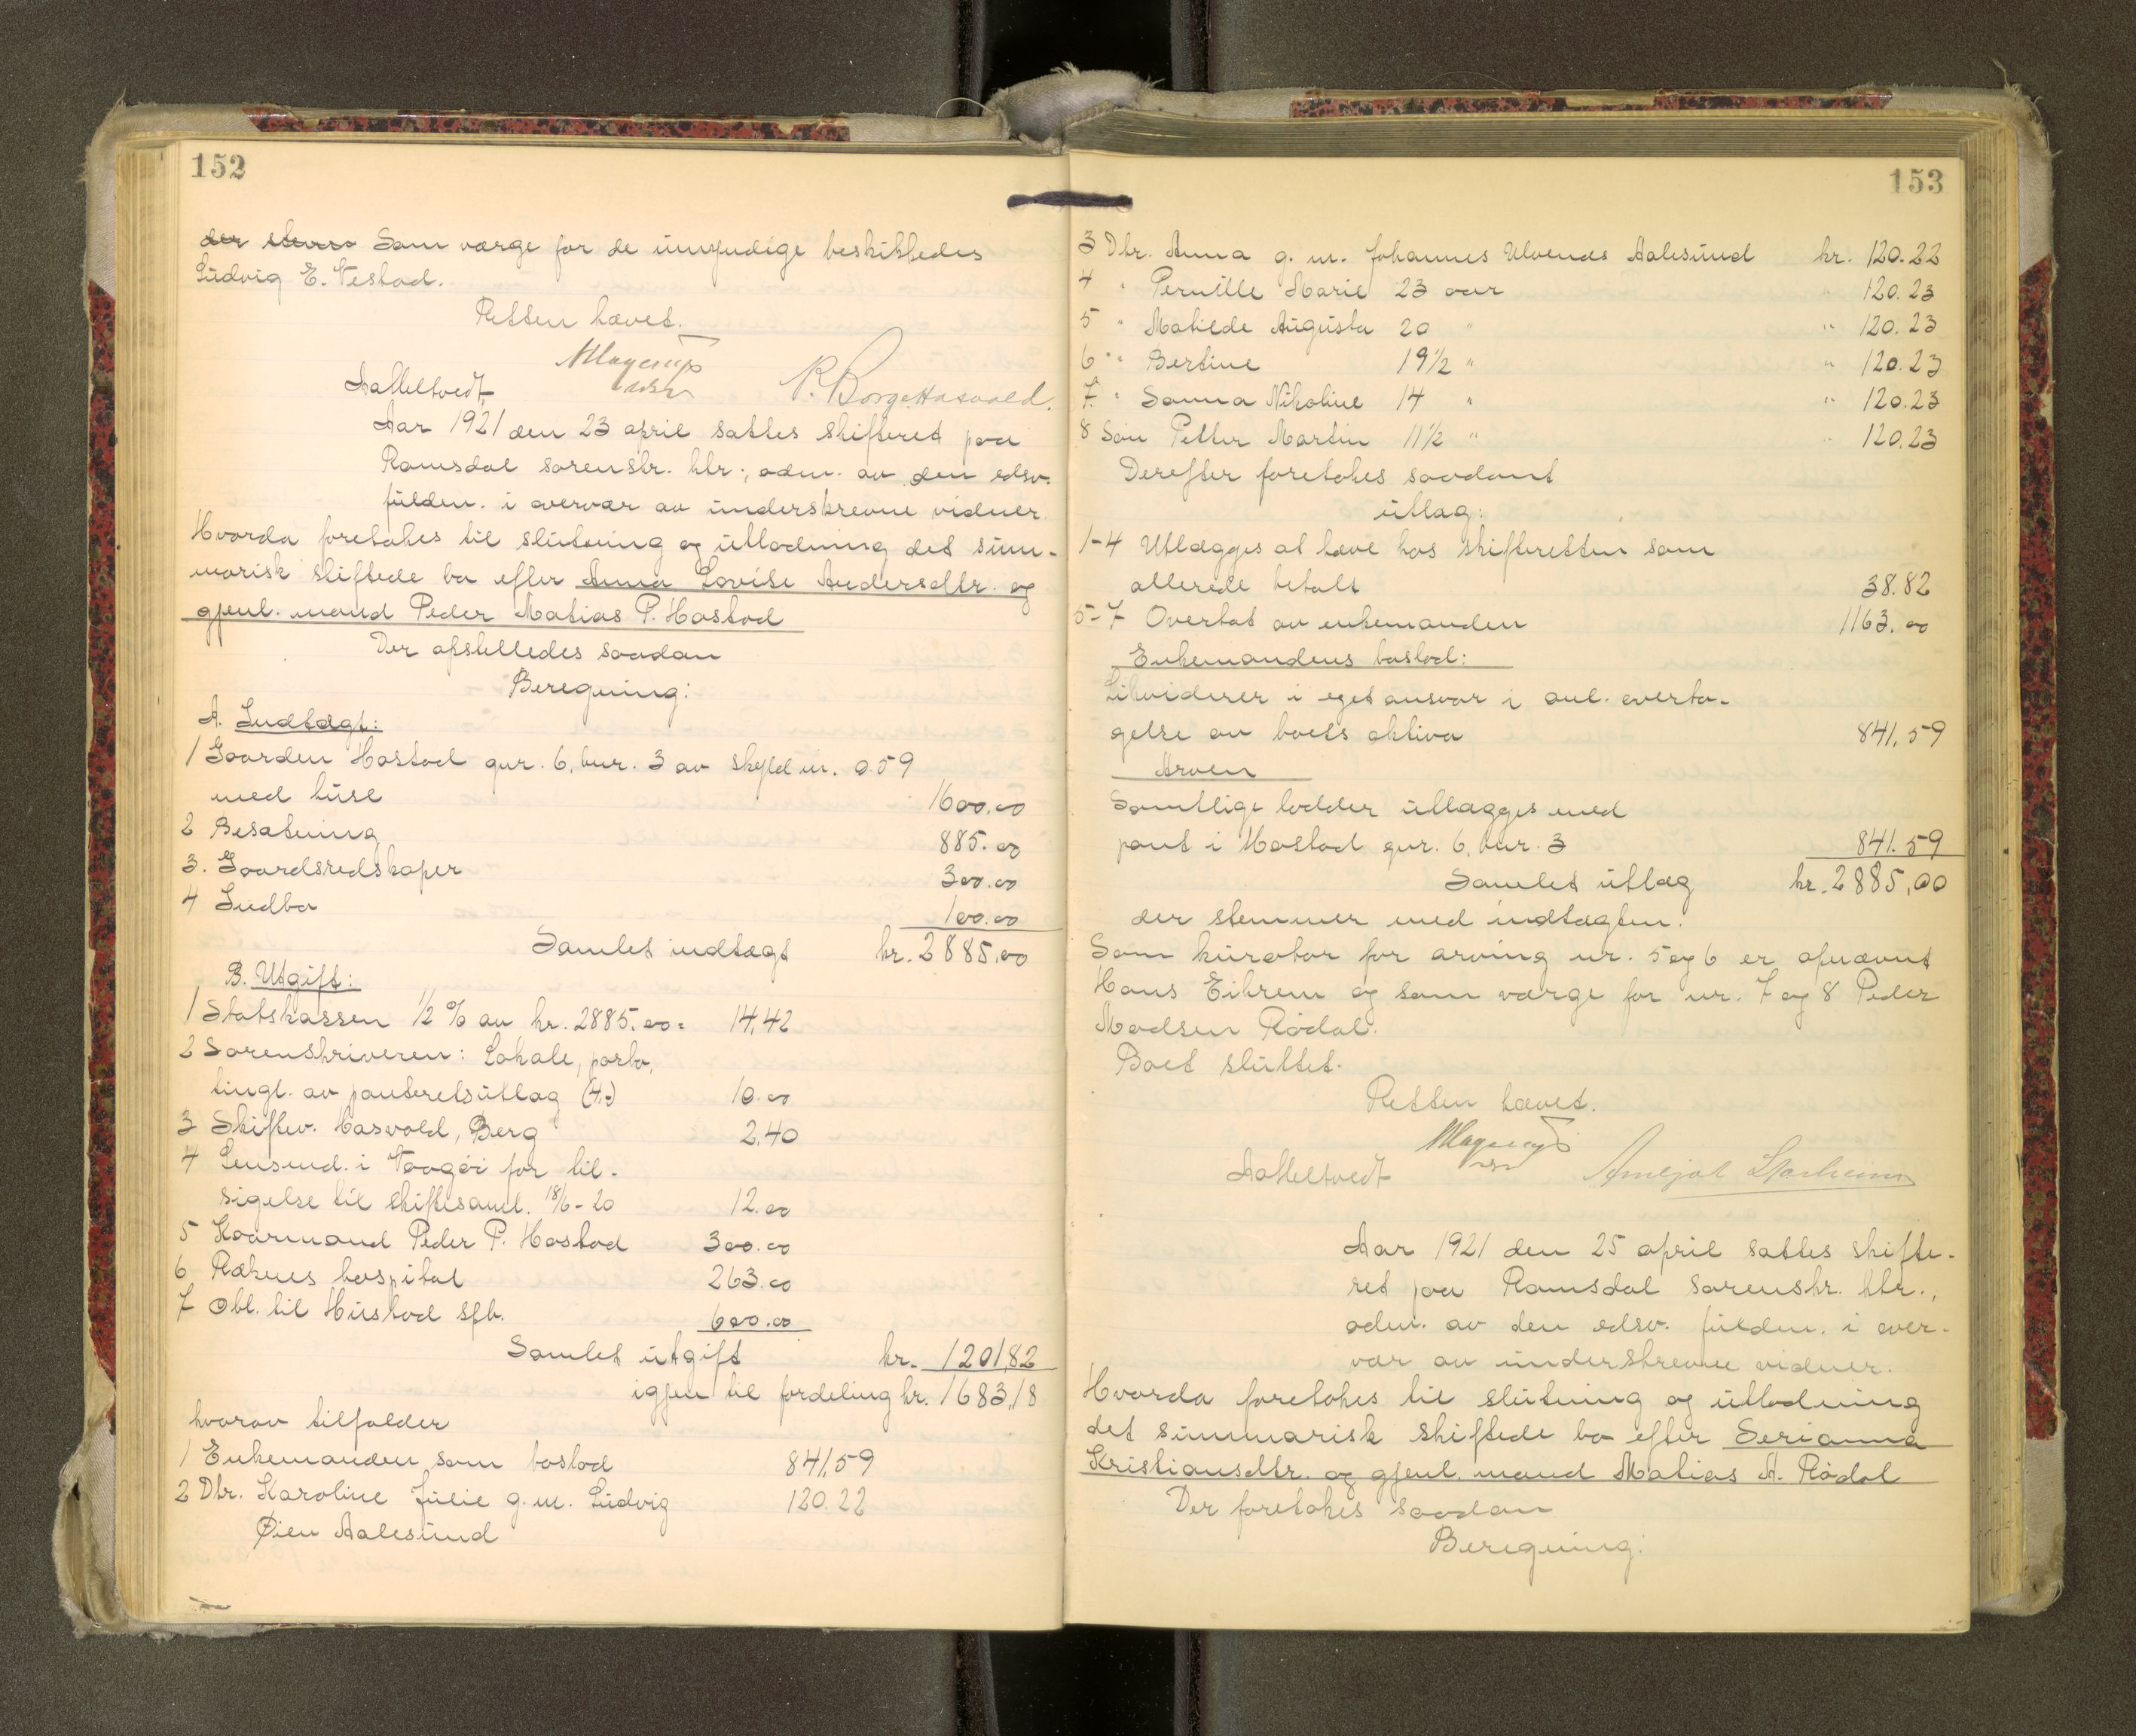 152
der stevns Som værge for de umyndige beskikkedes
Ludvig E. Vestad.
Retten hævet.
Aa Meltvedt
R. Borge Hasvold.
Aar 1921 den 23 april sattes skifteret paa
Romsdal sorenskr. ktr., adm. av den edsv.
fuldm. i overvær av underskrevne vidner.
Hvorda foretokes til slutning og utlodning det sum-
marisk skiftede bo efter Anna Lovise Andersdtr. og
gjenl. mand Peder Matias P. Hostad
Der opstilledes saadan
Beregning:
A. Indtægt:
1 Gaarden Hostad gnr. 6, bnr. 3 av skyld m. 0.59
med huse 1600.00
2 Besætning 885.00
3. Gaardsredskaper 300.00
4 Indbo 100.00
Samlet indtægt kr. 2885.00
B. Utgift:
1 Statskassen ½ % av kr. 2885.00 = 14,42
2 Sorenskriveren: Lokale, porto,
tingl. av panteretsutlæg (4.-) 10.00
3 Skiftev. Hasvold, Berg 2,40
4 Lensmd. i Vaagøi for til-
sigelse til skiftesaml. 18/6-20 12.00
5 Kaarmand Peder P. Hostad 300.00
6 Reknes hospital 263.00
7 Obl. til Hustad spb. 600.00
Samlet utgift kr. 1201,82
igjen til fordeling kr. 1683,18
hvorav tilfalder
1 Enkemanden som boslod 841,59
2 Dtr. Karoline Julie g. m. Ludvig 120.22
Øien Aalesund
153
3 Dtr. Anna g. m. Johannes Ulvenes Aalesund kr. 120.22
4 " Pernille Marie 23 aar " 120.23
5 " Matilde Augusta 20 " " 120.23
6 " Bertine 19½ " " 120.23
7. " Sanna Nikoline 14 " " 120.23
8 Søn Petter Martin 11½ " " 120.23
Derefter foretokes saadant
utlæg:
1-4 Utlægges at hæve hos skifteretten som
allerede betalt 38.82
5-7 Overtat av enkemanden 1163.00
Enkemandens boslod:
Likviderer i eget ansvar i anl. overta-
gelse av boets aktiva 841,59
Arven
Samtlige lodder utlægges med
pant i Hostad gnr. 6, bnr. 3 841.59
Samlet utlæg kr. 2885,00
der stemmer med indtægten.
Som kurator for arving nr. 5 og 6 er opnævnt
Hans Eikrem og som værge for nr. 7 og 8 Peder
Madsen Rødal.
Boet sluttet.
Retten hævet.
Aa Meltvedt
Aar 1921 den 25 april sattes skifte-
ret paa Romsdal sorenskr. ktr.,
adm. av den edsv. fuldm. i over-
vær av underskrevne vidner.
Hvorda foretokes til slutning og utlodning
det summarisk skiftede bo efter Serianna
Kristiansdtr. og gjenl. mand Matias A. Rødal
Der foretokes saadan
Beregning: